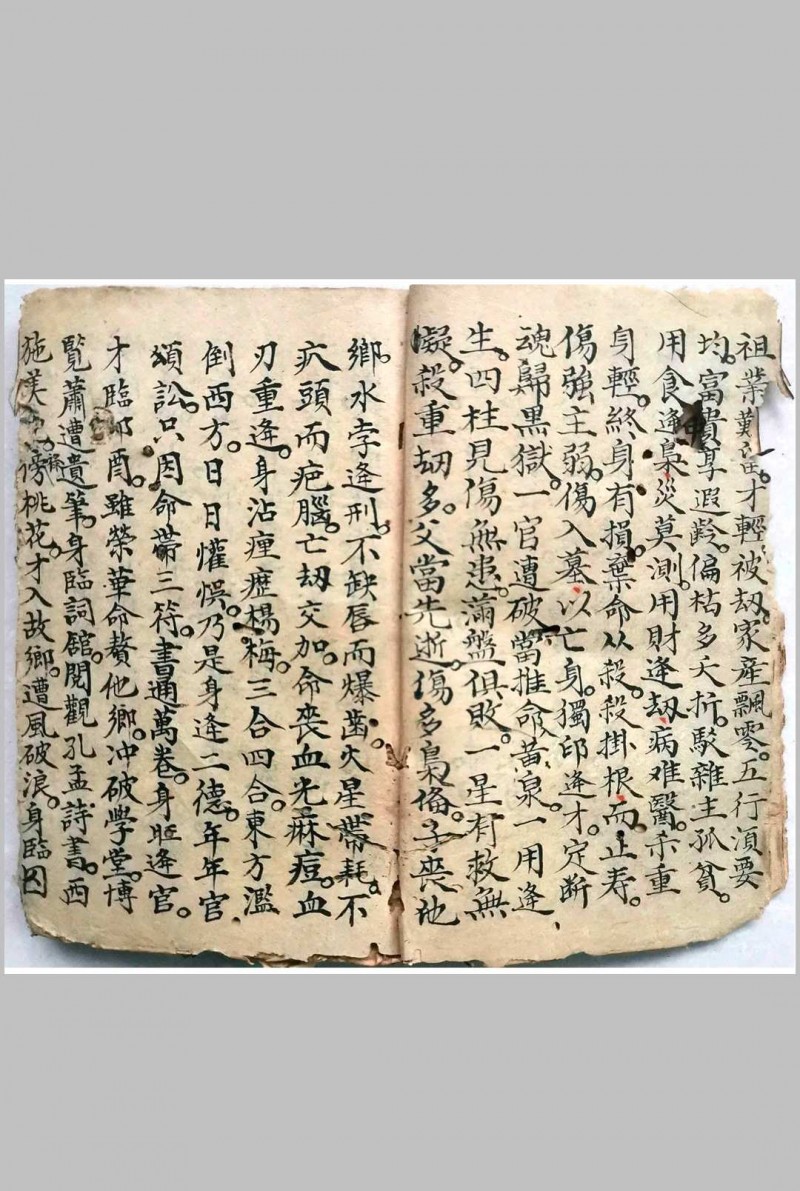 祖業難 才輕被刼。家産飄零。五行湏要
均。富貴享遐齡。偏枯多夭折。駁雜主孤貧。
用食逢梟災莫測。用財逢刼病难醫。杀重
身輕。終身有損。棄命从殺。殺掛根而正寿。
傷強主弱。傷入墓以亡身。獨卬逢才。定断
魂歸黒獄。一官遭破當推命黄泉。一用逢
生。四柱見傷無患。滿盤俱敗。一星有救無
凝。殺重刼多。父當先逝。傷多梟俻。子喪他
鄉。水孛逢刑。不缺唇而爆齒。火星帶耗。不
疤頭而疤腦。亡刼交加。命喪血光痳痘。血
刃重逢。身沾瘇瘂楊梅。三合四合。東方濫
倒西方。日日懽悮。乃是身逢二德。年年官
頌訟。只因命帶三符。書通萬卷。身旺逢官。
才臨卯酉。雖榮華命贅他鄉。冲破學堂。博
覧蕭遭遺筆。身臨詞舘。閲觀孔孟詩書。西
施美 傍桃花。才入故鄉。遭風破浪。身臨囚